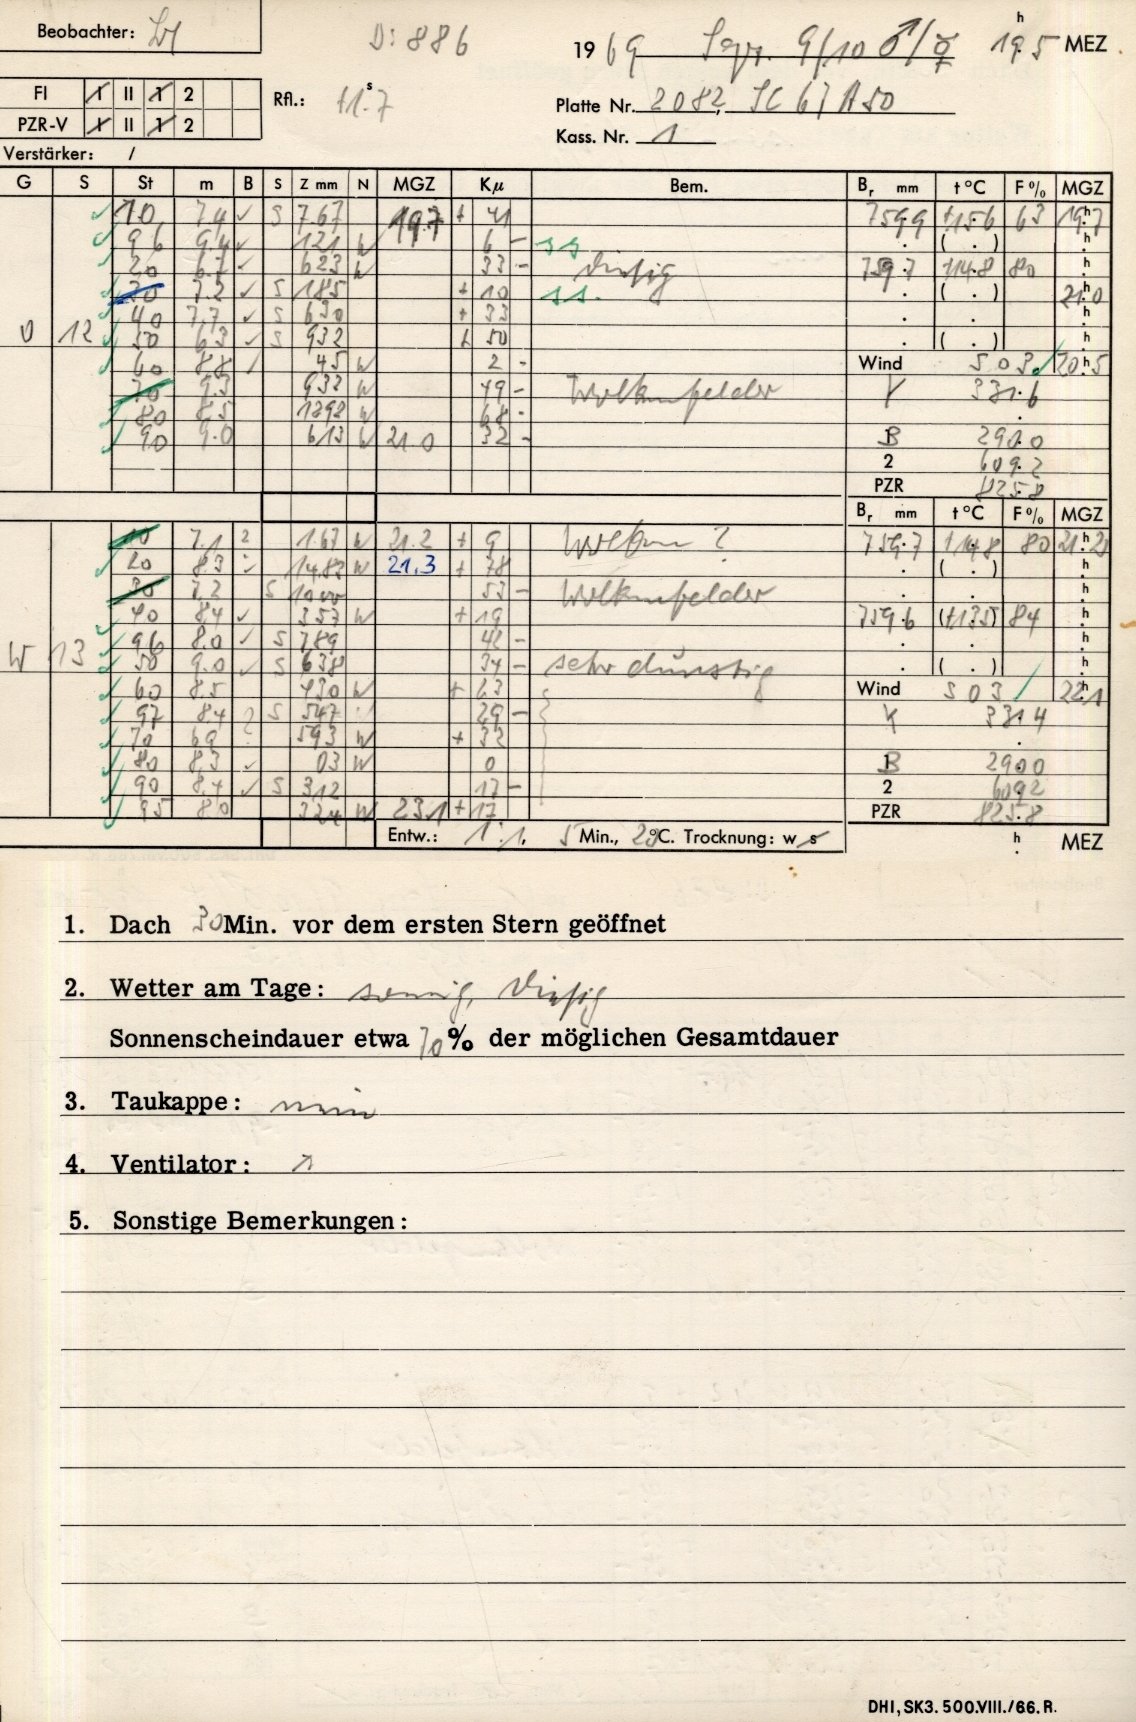 Beobachter:
D: 886
19 69 Sept. 9/10 ♂/☿ 19.5 h MEZ
FI I II 1 2
Rfl.: +1.7 s
Platte Nr. 2082, SC 67 A50
PZR-V I II 1 2
Kass. Nr. 1
Verstärker: /
G S St m B S Z mm N MGZ Kμ Bem. Br mm t °C F % MGZ
10 7.4 ✓ S 767 19.7 + 41 759.9 +15.6 63 19.7 h
96 9.4 ✓ 121 W 6 – ss . ( . ) h
20 6.7 ✓ 623 W 33 – diesig 759.7 +14.8 80 h
30 7.2 ✓ S 185 + 10 ss. . ( . ) 21.0
40 7.7 ✓ S 630 + 33 . . h
O 12 50 6.3 ✓ S 932 + 50 . ( . ) h
60 8.8 / 45 W 2 – Wind S 03 20.5 h
70 9.3 932 W 49 – Wolkenfelder Y 331.6
80 8.5 1292 W 68 –
90 9.0 613 W 21.0 32 – B 290.0
2 609.2
PZR 825.8
Br mm t °C F % MGZ
10 7.1 2 167 W 21.2 + 9 Wolken ? 759.7 +14.8 80 21.2 h
20 8.3 1483 W 21.3 + 78 . ( . ) h
30 7.2 S 1000 53 – Wolkenfelder . . h
40 8.4 ✓ 357 W + 19 759.6 (+13.5) 84 h
96 8.0 ✓ S 789 42 – . . h
W 13 50 9.0 ✓ S 638 34 – sehr dunstig . ( . ) h
60 8.5 430 W + 23 Wind S 03 / 22.1 h
97 8.4 2 S 547 29 – Y 331.4
70 6.9 593 W + 32
80 8.3 ✓ 03 W 0 B 290.0
90 8.4 ✓ S 312 17 – 2 609.2
95 8.0 324 W 23.1 + 17 PZR 825.8
Entw.: 1:1, 5 Min., 20 °C. Trocknung: w s h MEZ
1. Dach 30 Min. vor dem ersten Stern geöffnet
2. Wetter am Tage: sonnig, diesig
Sonnenscheindauer etwa 70 % der möglichen Gesamtdauer
3. Taukappe: nein
4. Ventilator: ↗
5. Sonstige Bemerkungen:
DHI, SK3. 500.VIII./66. R.